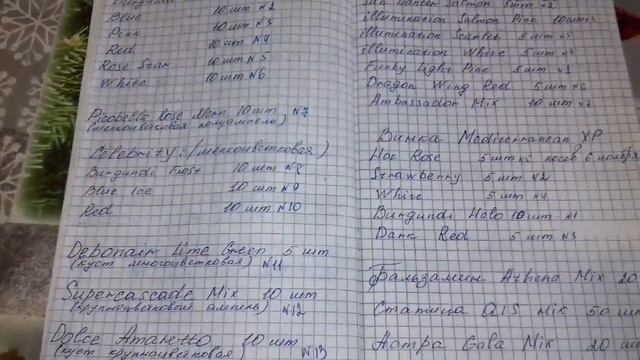 Burgundi 10 шт №1
Blue 10 шт №2
Pink 10 шт №3
Red 10 шт №4
Rose Star 10 шт №5
White 10 шт №6
Picobella Rose Morn 10 шт №7
(мелкоцветковая полуампель)
Celebrity: (мелкоцветковая)
Burgundi Frost 10 шт №8
Blue Ice 10 шт №9
Red 10 шт №10
Debonair Lime Green 5 шт
(куст многоцветковая) №11
Supercascade Mix 10 шт
(крупноцветковый ампель) №12
Dolce Amaretto 10 шт
(куст крупноцветковая) №13
Sun Dancer Salmon 5 шт №2
illumination Salmon Pink 10 шт
illumination Scarlet 5 шт
illumination White 5 шт
Funky Light Pink 5 шт №1
Dragon Wing Red 5 шт №6
Ambassador Mix 10 шт
Винка Mediterranean XP
Hot Rose 5 шт №5 посев 6 ноября
Strawberry 5 шт №2
White 5 шт №4
Burgundi Halo 10 шт №1
Dark Red 5 шт №3
Бальзамин Athena Mix 20
Статица QIS Mix 50 шт
Астра Gala Mix 20 шт